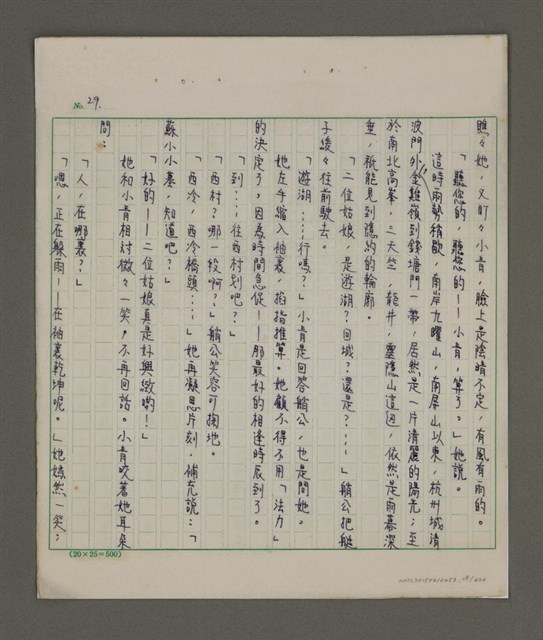 No. 29.
瞧々她，又盯々小青，臉上是陰晴不定，有風有雨的。
「聽您的，聽您的——小青，算了。」她說。
這時雨勢稍歇，南岸九曜山，南屏山以東，杭州城清
波門外金雞嶺到錢塘門一帶，居然是一片清麗的陽光；至
於南北高峯，三天竺，龍井，靈隱山這邊，依然是雨暮深
垂，祇能見到隱約的輪廓。
「二位姑娘，是遊湖？回城？還是？……」艄公把艇
子緩々往前駛去。
「遊湖……行嗎？」小青是回答艄公，也是問她。
她左手縮入袖裏，掐指推算。她顧不得不用「法力」
的決定了，因為時間急促——那最好的相逢時辰到了。
「到……往西村划吧？」
「西村？哪一段啊？」艄公笑容可掬地。
「西冷，西冷橋頭……」她再凝思片刻，補充說：「
蘇小小墓，知道吧？」
「好的——二位姑娘真是好興緻喲！」
她和小青相對微々一笑，不再回話。小青咬著她耳朵
問：
「人，在哪裏？」
「嗯，正在躲雨——在袖裏乾坤呢。」她嫣然一笑；
(20×25=500)